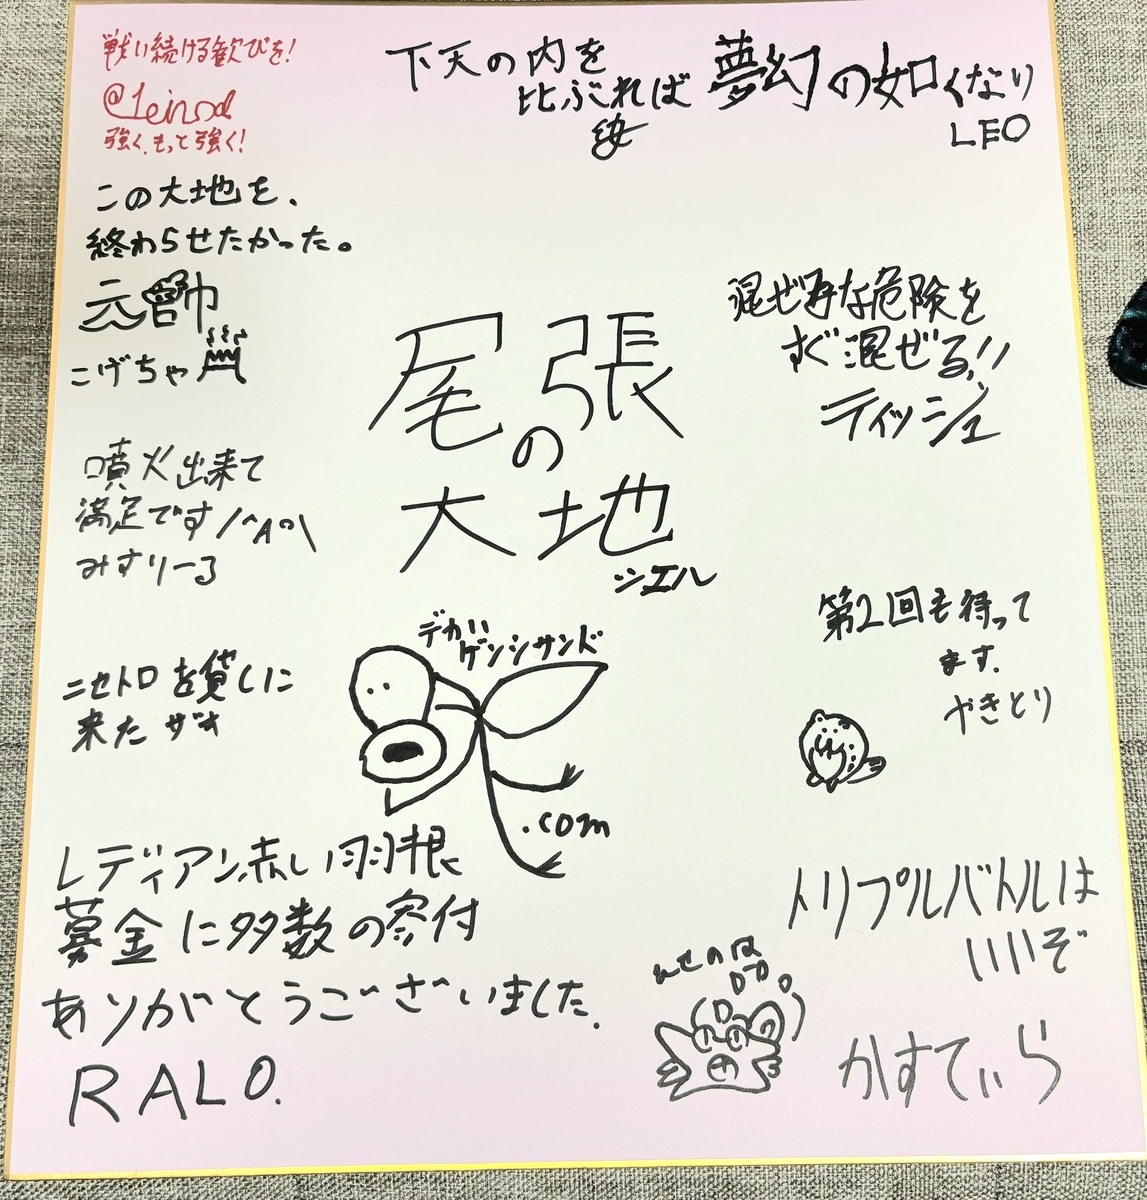 戦い続ける歓びを!
強く、もっと強く!
下天の内を
比ぶれば 夢幻の如くなり
LEO
この大地を、
終わらせたかった。
元帥
こげちゃ
混ぜ等な危険を
すぐ混ぜる!!
ティッシュ
尾張
の
大地
シエル
噴火出来て
満足です
みすりーる
第2回も待って
ます.
やきとり
ニセトロを貸しに
来た ザキ
デカい
ゲンシサンド
.com
レディアン赤い羽根
募金に多数の寄付
ありがとうございました.
RALO.
トリプルバトルは
いいぞ
かすてぃら